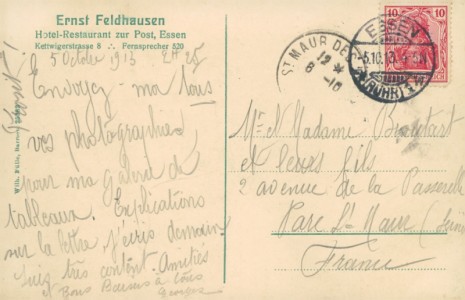 Ernst Feldhausen
Hotel-Restaurant zur Post, Essen
Kettwigerstrasse 8 ∴ Fernsprecher 520
5 October 1913
Envoyez-ma tous
vos photographies
pour ma galerie de
tableaux. Explications
sur la lettre j'écris demain
suis très content. Amitiés
et Bons Baisers à tous
Georges
ST MAUR DES
12 *
8 -10
ESSEN
-5.10.13
(RUHR)
10 10
Mr et Madame
et leurs fils
2 avenue de la Passerelle
Parc St Maur (Seine
France